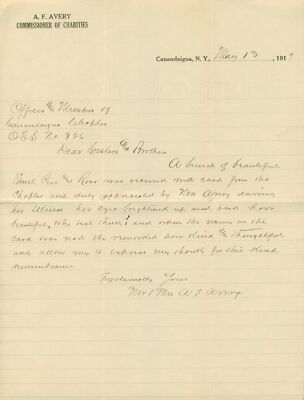 A. F. AVERY
COMMISSIONER OF CHARITIES
Canandaigua, N. Y., May 13, 191
Officers & Members of
Canandaigua Chapter
O E S No 326
Dear Sisters & Brothers
A bunch of beautiful
Sweet Peas & Roses was received with card from the
Chapter and duly appreciated by Mrs Avery during
her illness her eyes brightened up and said how
beautiful, who sent them, and when the name on the
card was read she remarked how Kind & thoughtful
and allow me to express my thanks for this Kind
remembrance.
Fraternally Yours
Mr & Mrs A F Avery